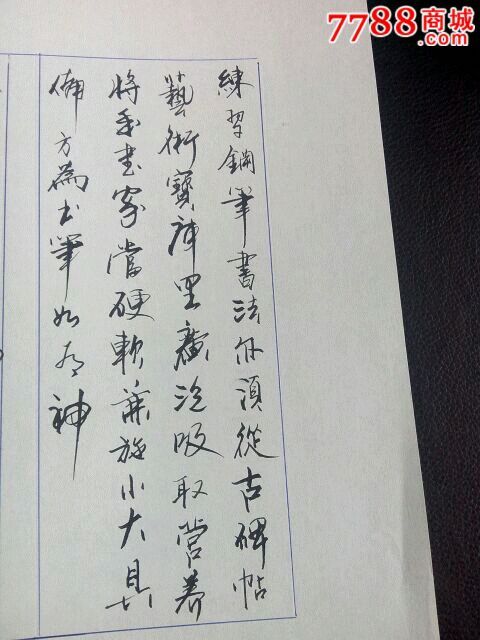 7788商城
練習鋼筆書法必須從古碑帖
藝術寶庫里廣泛吸取營養
將來書家當硬軟兼施小大具
備方為下筆如有神